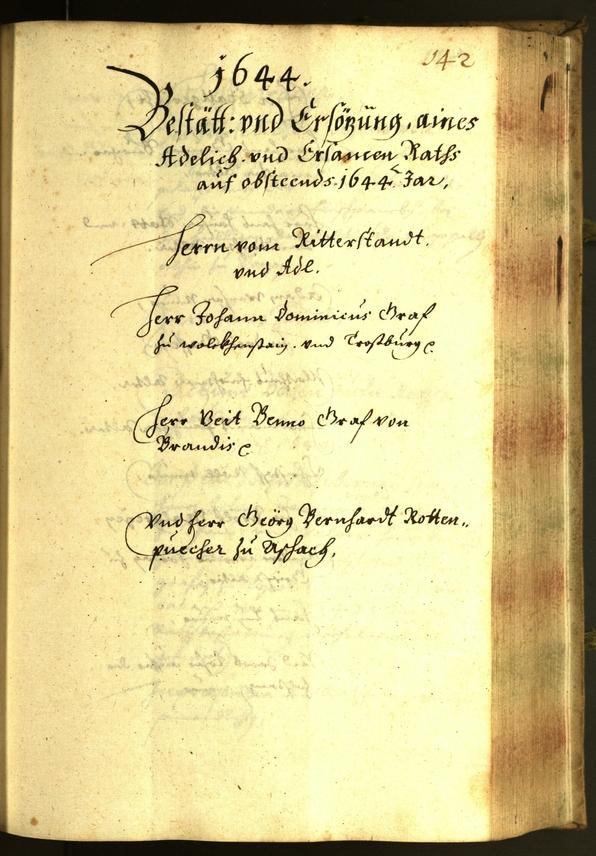 142
1644.
Bestätt: vnd Ersözung, aines
Adelich. vnd Ersamen Raths
auf obsteends 1644. Jar.
Herrn vom Ritterstandt.
vnd Adl.
Herr Johann Dominicus Graf
zu wolckhenstain. vnd Trostburg
Herr Veit Benno Graf von
Brandis
Vnd herr Geörg Bernhardt Rotten„
puecher zu Aschach,